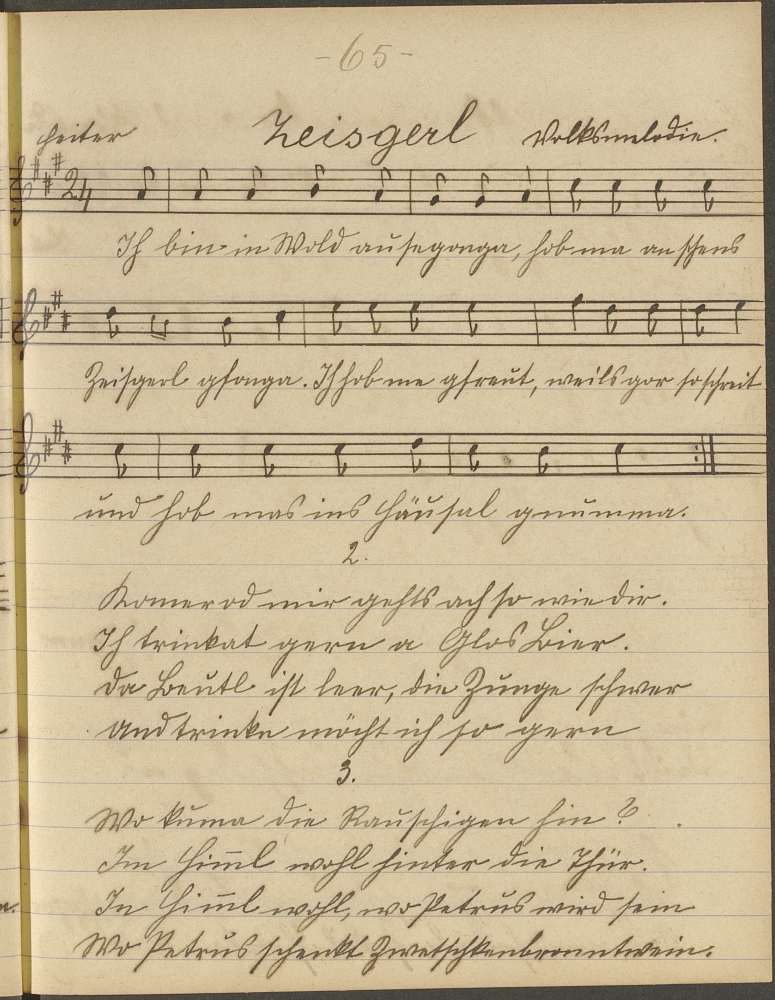 -65-
heiter Zeisgerl Volksmelodie.
24
Ich bin in Wold ausegonga, hob ma an schens
Zeisgerl gfonga. Ich hob me gfreut, weils gor so schreit
und hob mas ins Häusal gnumma.
2.
Kamerod mir gehts ach so wie dir.
Ich trinkat gern a Glos Bier.
Da Beutl ist leer, die Zunge schwer
Und trinke möcht ich so gern
3.
Wo kuma die Rauschigen hin?
Im Him̅l wohl hinter die Thür.
In Him̅l wohl, wo Petrus wird sein
Wo Petrus schenkt Zwetschkenbronntwein.